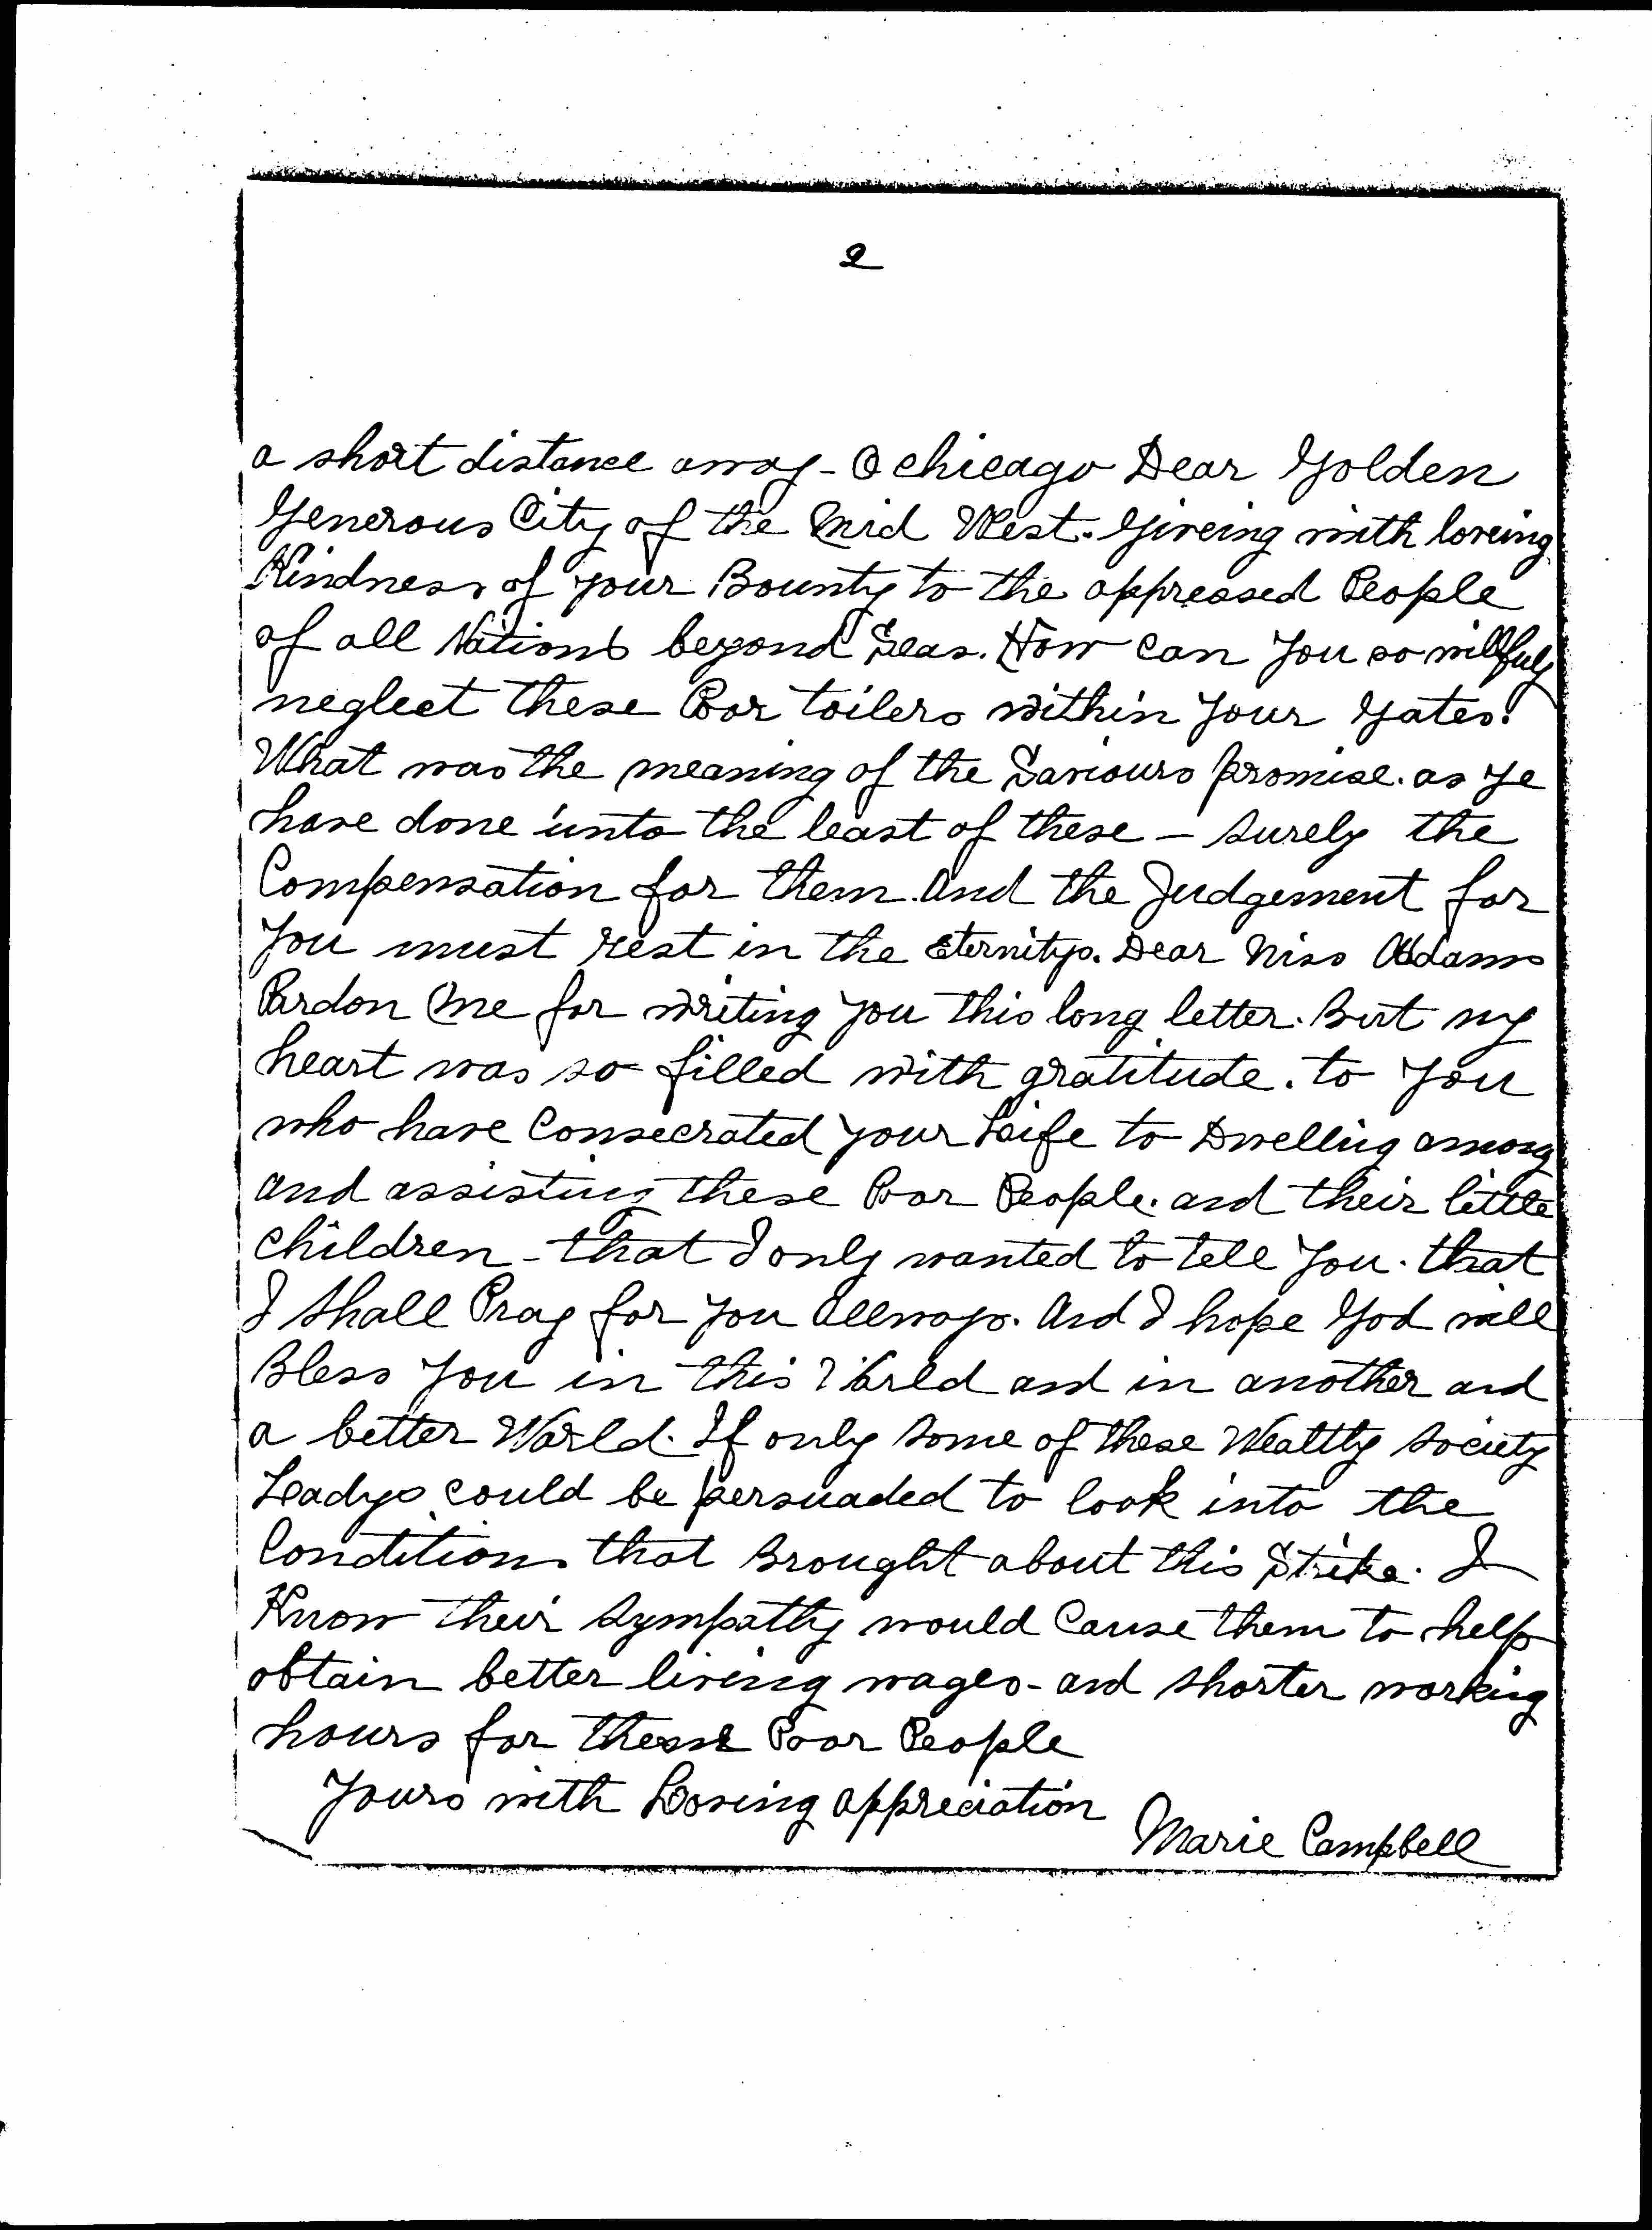 2
a short distance away - O Chicago Dear Golden
Generous City of the Mid West. Giveing with loveing
Kindness of your Bounty to the oppressed People
of all Nations beyond Seas. How can you so willfuly
neglect these Poor toilers within your Gates.
What was the meaning of the Saviours promise. as ye
have done unto the least of these - surely the
Compensation for them. and the Judgement for
you must rest in the Eternitys. Dear Miss Addams
Pardon Me for writing you this long letter. But my
heart was so filled with gratitude. to you
who have Consecrated your Life to Dwelling among
and assisting these Poor People. and their little
children - that I only wanted to tell you. that
I shall Pray for you allways. And I hope God will
Bless you in this World and in another and
a better World. If only some of these Wealthy society
Leadys could be persuaded to look into the
Conditions that Brought about this Strike. I
Know their sympathy would Cause them to help
obtain better living wages - and shorter working
hours for these Poor People
Yours with Loving appreciation
Marie Campbell